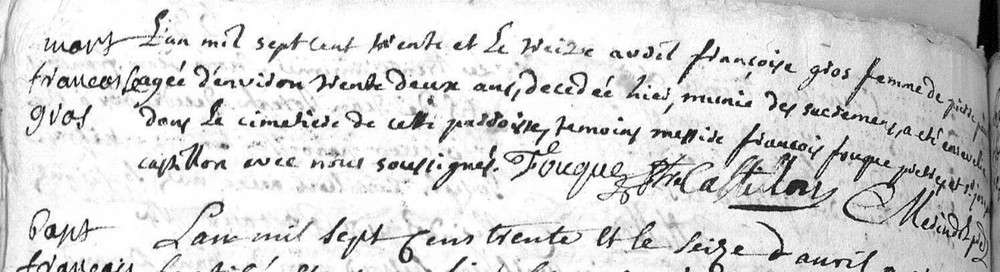 mort
francoise
gros
L'an mil sept cent trente et le treize avril françoise gros femme de pierre
agée d'environ trente deux ans, decedée hier, munie des sacremens, a eté ensevelie
dans le cimetiere de cette parroisse, temoins messire françois fouque pretre et
castillon avec nous soussignés. Fouque ptre Castillon
bapt
francois
L'an mil sept cens trente et le seize d'avril